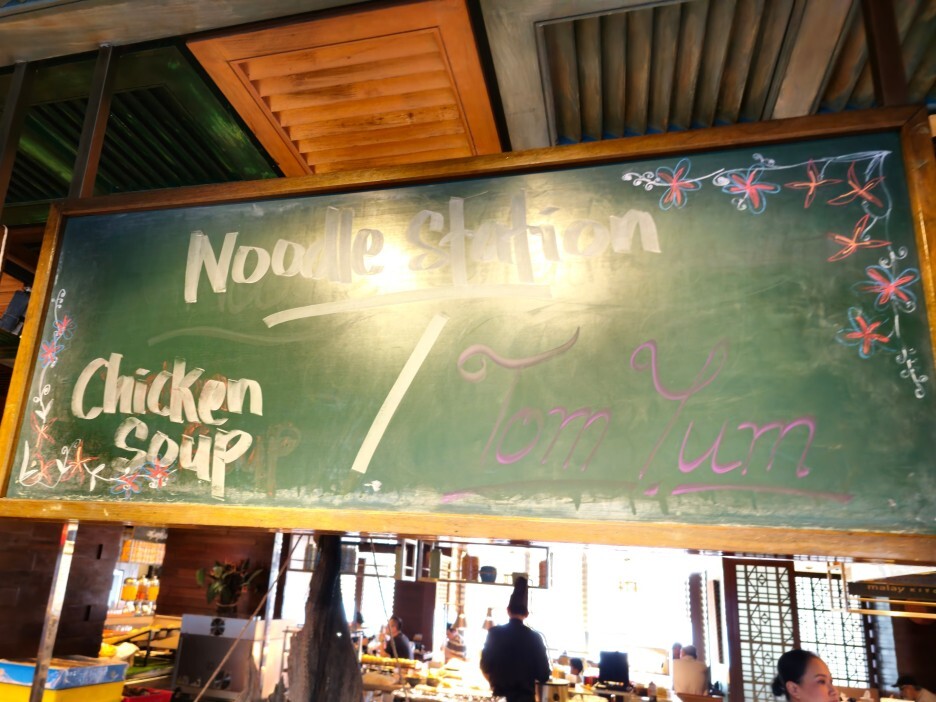 Noodle Station
Chicken Soup / Tom Yum
malay